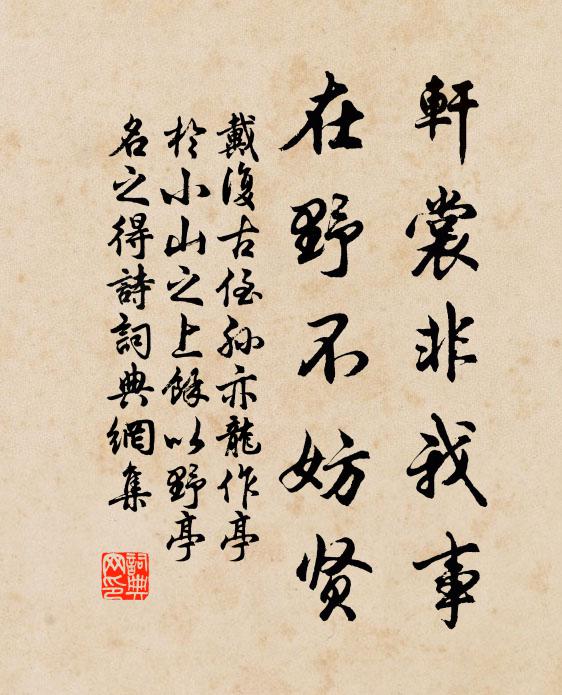 軒裳非我事
在野不妨贤
戴復古侄孙亦龍作亭
於小山之上餘以野亭
名之得詩詞典網集
詞典
网印